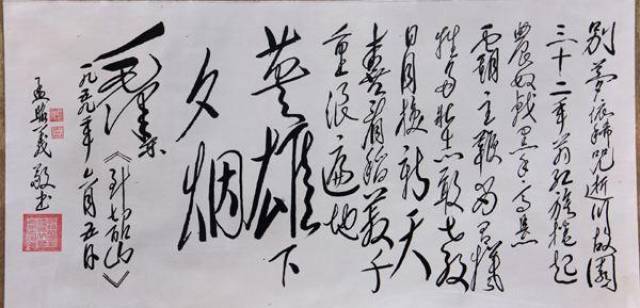 别梦依稀咒逝川故园
三十二年前红旗捲起
农奴戟黑手高悬
霸主鞭为有犠
牲多壮志敢教
日月换新天
喜看稻菽千
重浪遍地
英雄下
夕烟
毛泽东《到韶山》
年六月五日
孟义敬书